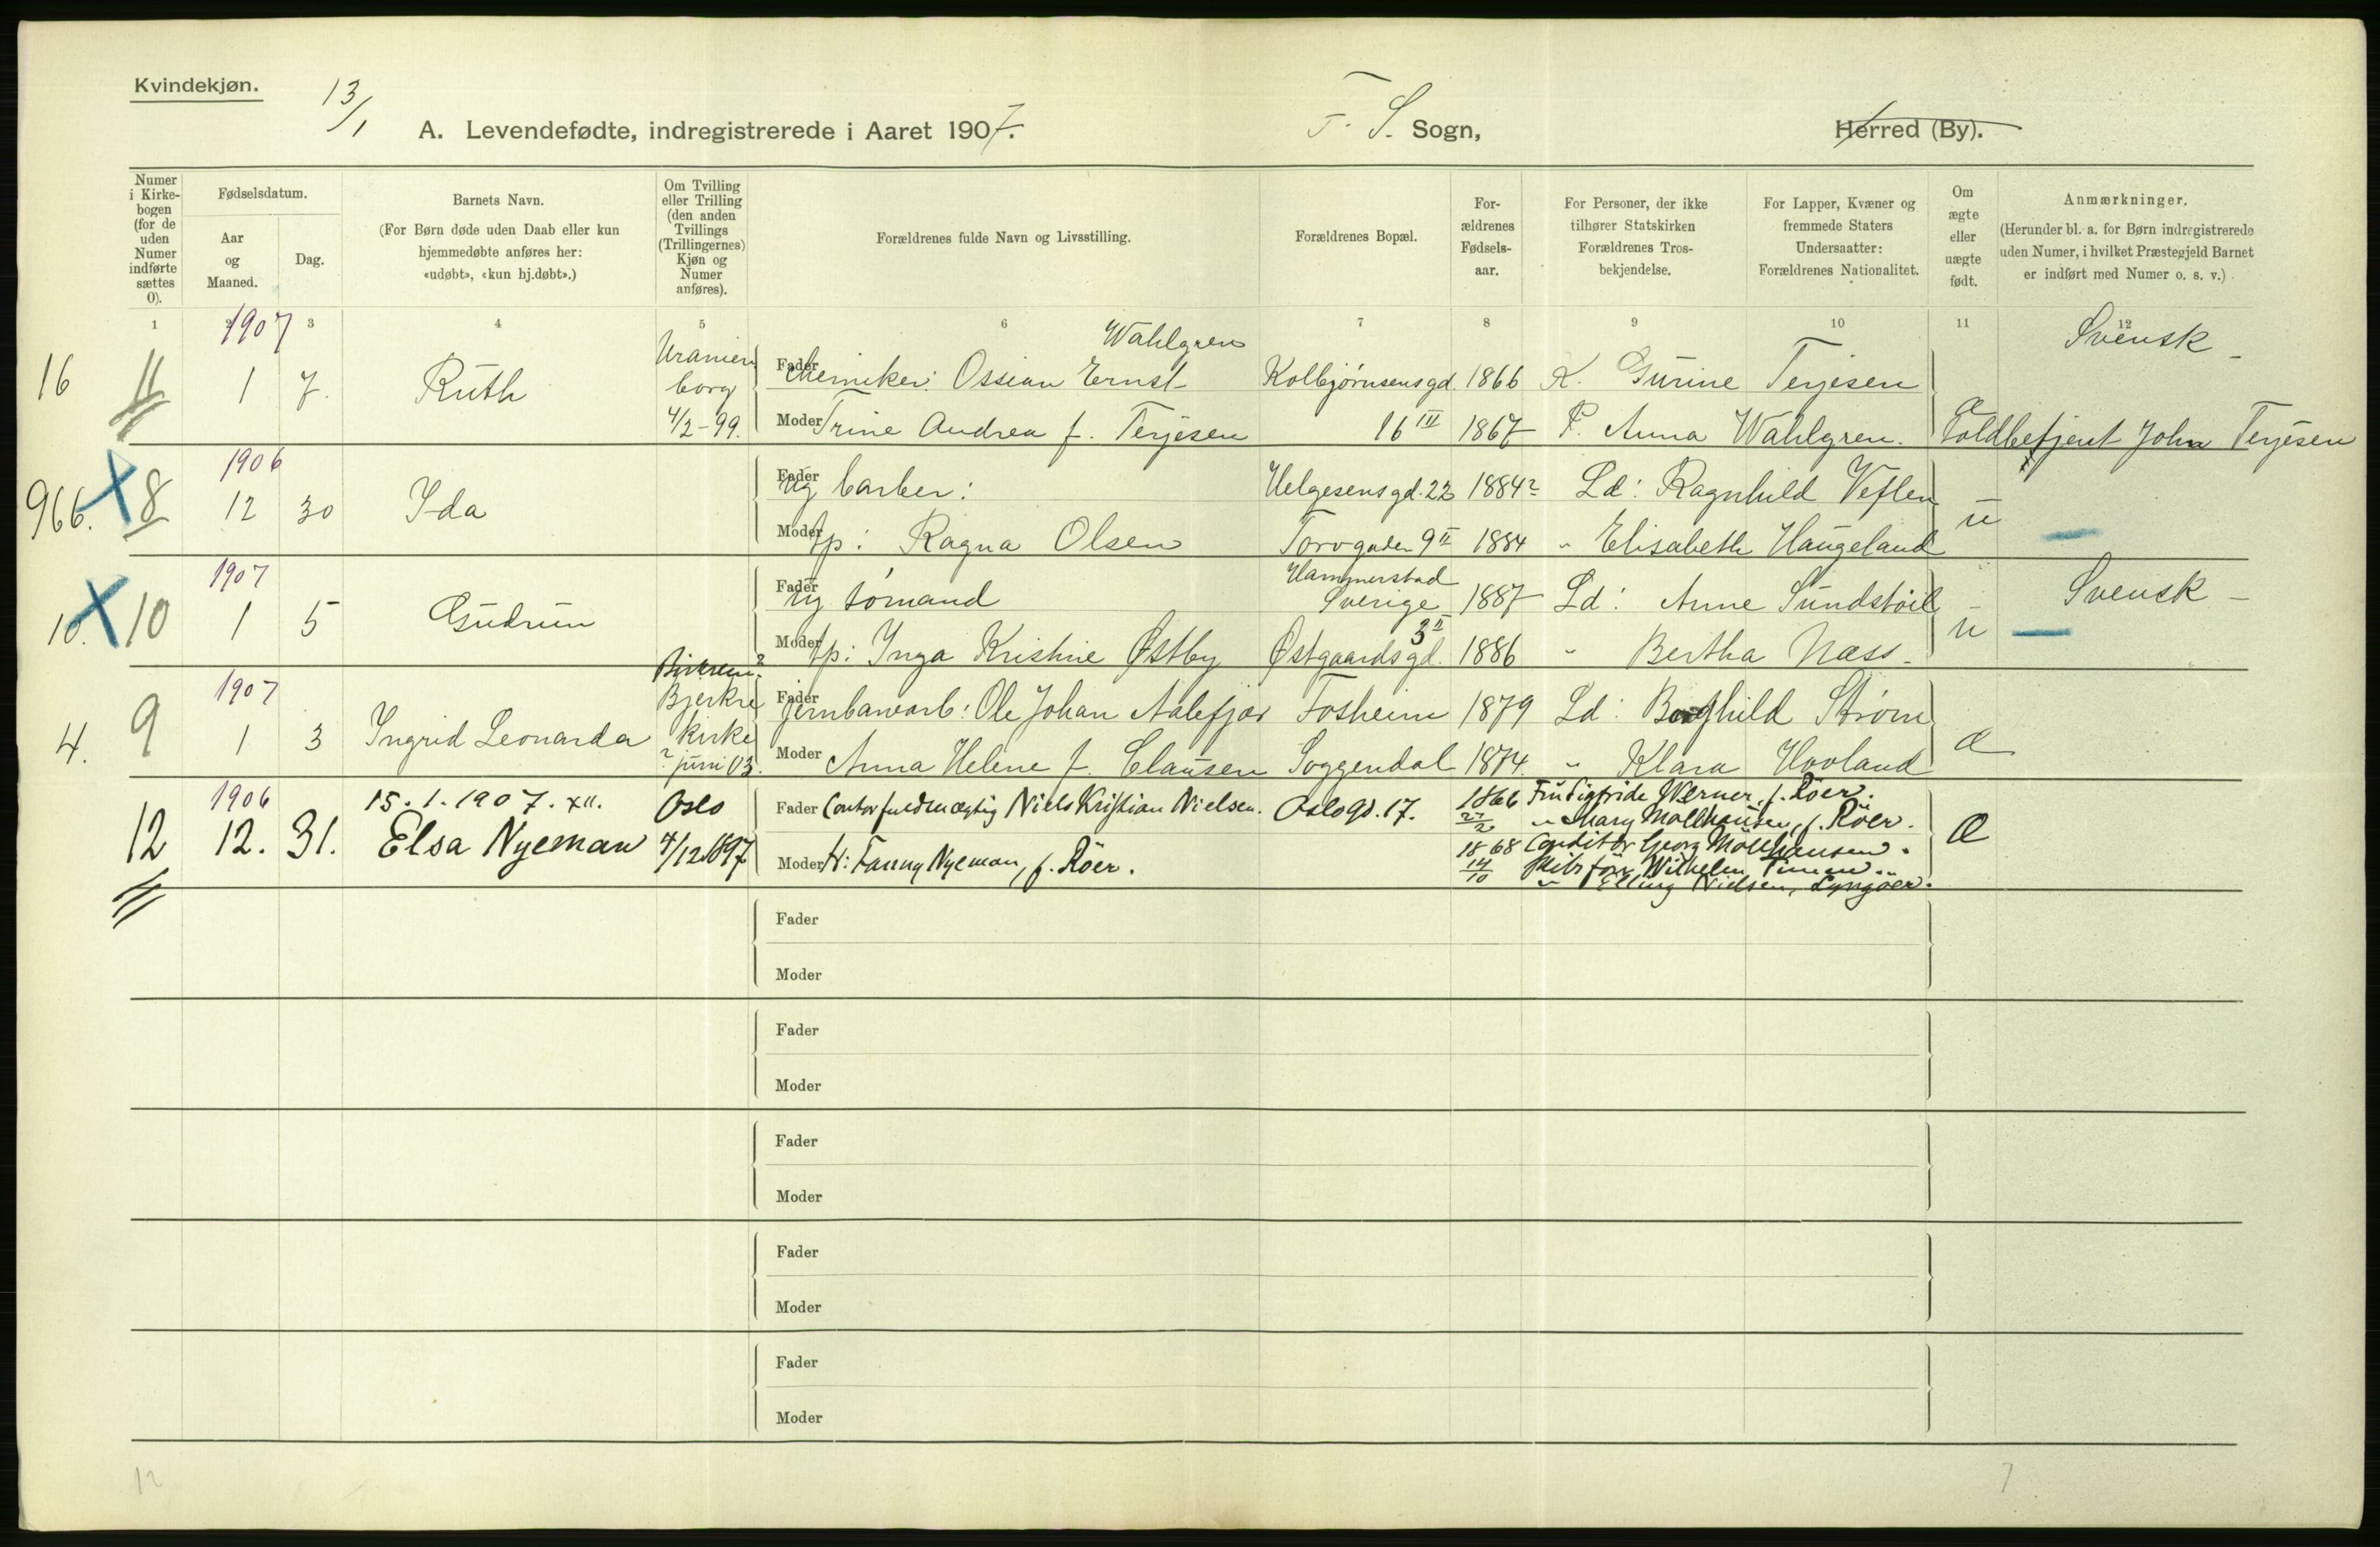 Kvindekjøn.
13/1
A. Levendefødte, indregistrerede i Aaret 1907.
F. S. Sogn,
Herred (By).
Numer i Kirkebogen (for de uden Numer indførte sættes 0).
Fødselsdatum.
Aar og Maaned.
Dag.
Barnets Navn.
(For Børn døde uden Daab eller kun hjemmedøbte anføres her: «udøbt», «kun hj.døbt».)
Om Tvilling eller Trilling (den anden Tvillings (Trillingernes) Kjøn og Numer anføres).
Forældrenes fulde Navn og Livsstilling.
Forældrenes Bopæl.
Forældrenes Fødselsaar.
For Personer, der ikke tilhører Statskirken Forældrenes Trosbekjendelse.
For Lapper, Kvæner og fremmede Staters Undersaatter: Forældrenes Nationalitet.
Om ægte eller uægte født.
Anmærkninger.
(Herunder bl. a. for Børn indregistrerede uden Numer, i hvilket Præstegjeld Barnet er indført med Numer o. s. v.)
1 2 3 4 5 6 7 8 9 10 11 12
1907 Uranien Wahlgren Svensk
16 11 1 7. Ruth borg Fader Chemiker: Ossian Ernst Kolbjørnsensgd. 1866 K. Gurine Terjesen
4/2-99. Moder Trine Andrea f. Terjesen 16 III 1867 P. Anna Wahlgren. Toldbetjent John Terjesen
1906 Fader Ug barber: Helgesensgd. 22 1884? Ld: Ragnhild Veflen
966. 8 12 30 Ida u
Moder tp: Ragna Olsen Torvgaden 9 II 1884 " Elisabeth Haugeland
1907 Hammerstad
10. 10 1 5 Gudrun Fader Ug sømand Sverige 1887 Ld: Anne Sundstøil u Svensk
Moder tp: Inga Kristine Østby Østgaardsgd. 3 II 1886 " Bertha Næss
1907 Bjerke Fader jernbanearb: Ole Johan Aalefjær Fosheim 1879 Ld: Borghild Strøm
4. 9 1 3 Ingrid Leonarda kirke æ
? juni 03. Moder Anna Helene f. Clausen Soggendal 1874. " Klara Hovland
1906 15.1.1907. XII. Oslo Fader Contorfuldmægtig Niels Kristian Nielsen. Oslogd. 17. 1866 27/2 Fru Sigfride Werner, f. Röer.
" Mary Möllhausen, f. Röer.
12 12. 31. Elsa Nyeman 4/12 1897 Moder H: Fanny Nyeman, f. Röer. 1868 14/10 Conditor Georg Möllhausen. Æ
Skibsfør. Wilhelm
" Elling Nielsen, Lyngöer.
Fader
Moder
Fader
Moder
Fader
Moder
Fader
Moder
Fader
Moder
12
7